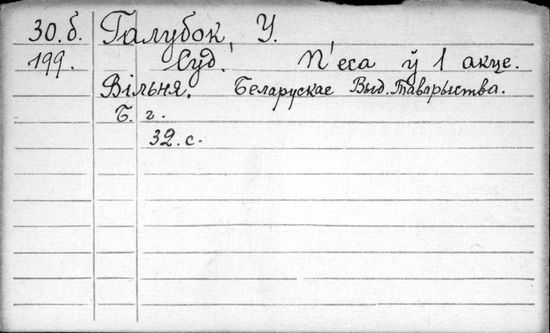 30.б. Галубок, У.
199. Суд. П'еса ў 1 акце.
Вільня. Беларускае Выд. Таварыства.
Б. г.
32. с.